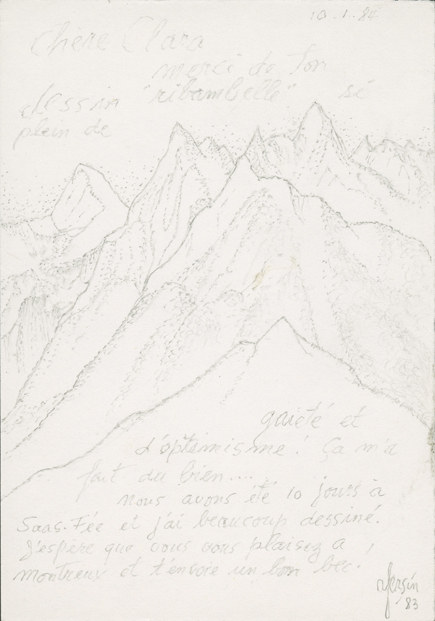 10.1.84
Chère Clara
merci de ton
dessin "ribambelle" si
plein de
gaieté et
d'optimisme! Ça m'a
fait du bien...
nous avons été 10 jours à
Saas-Fée et j'ai beaucoup dessiné.
J'espère que vous vous plaisez à
montreux et t'envoie un bon bec!
yersin
83